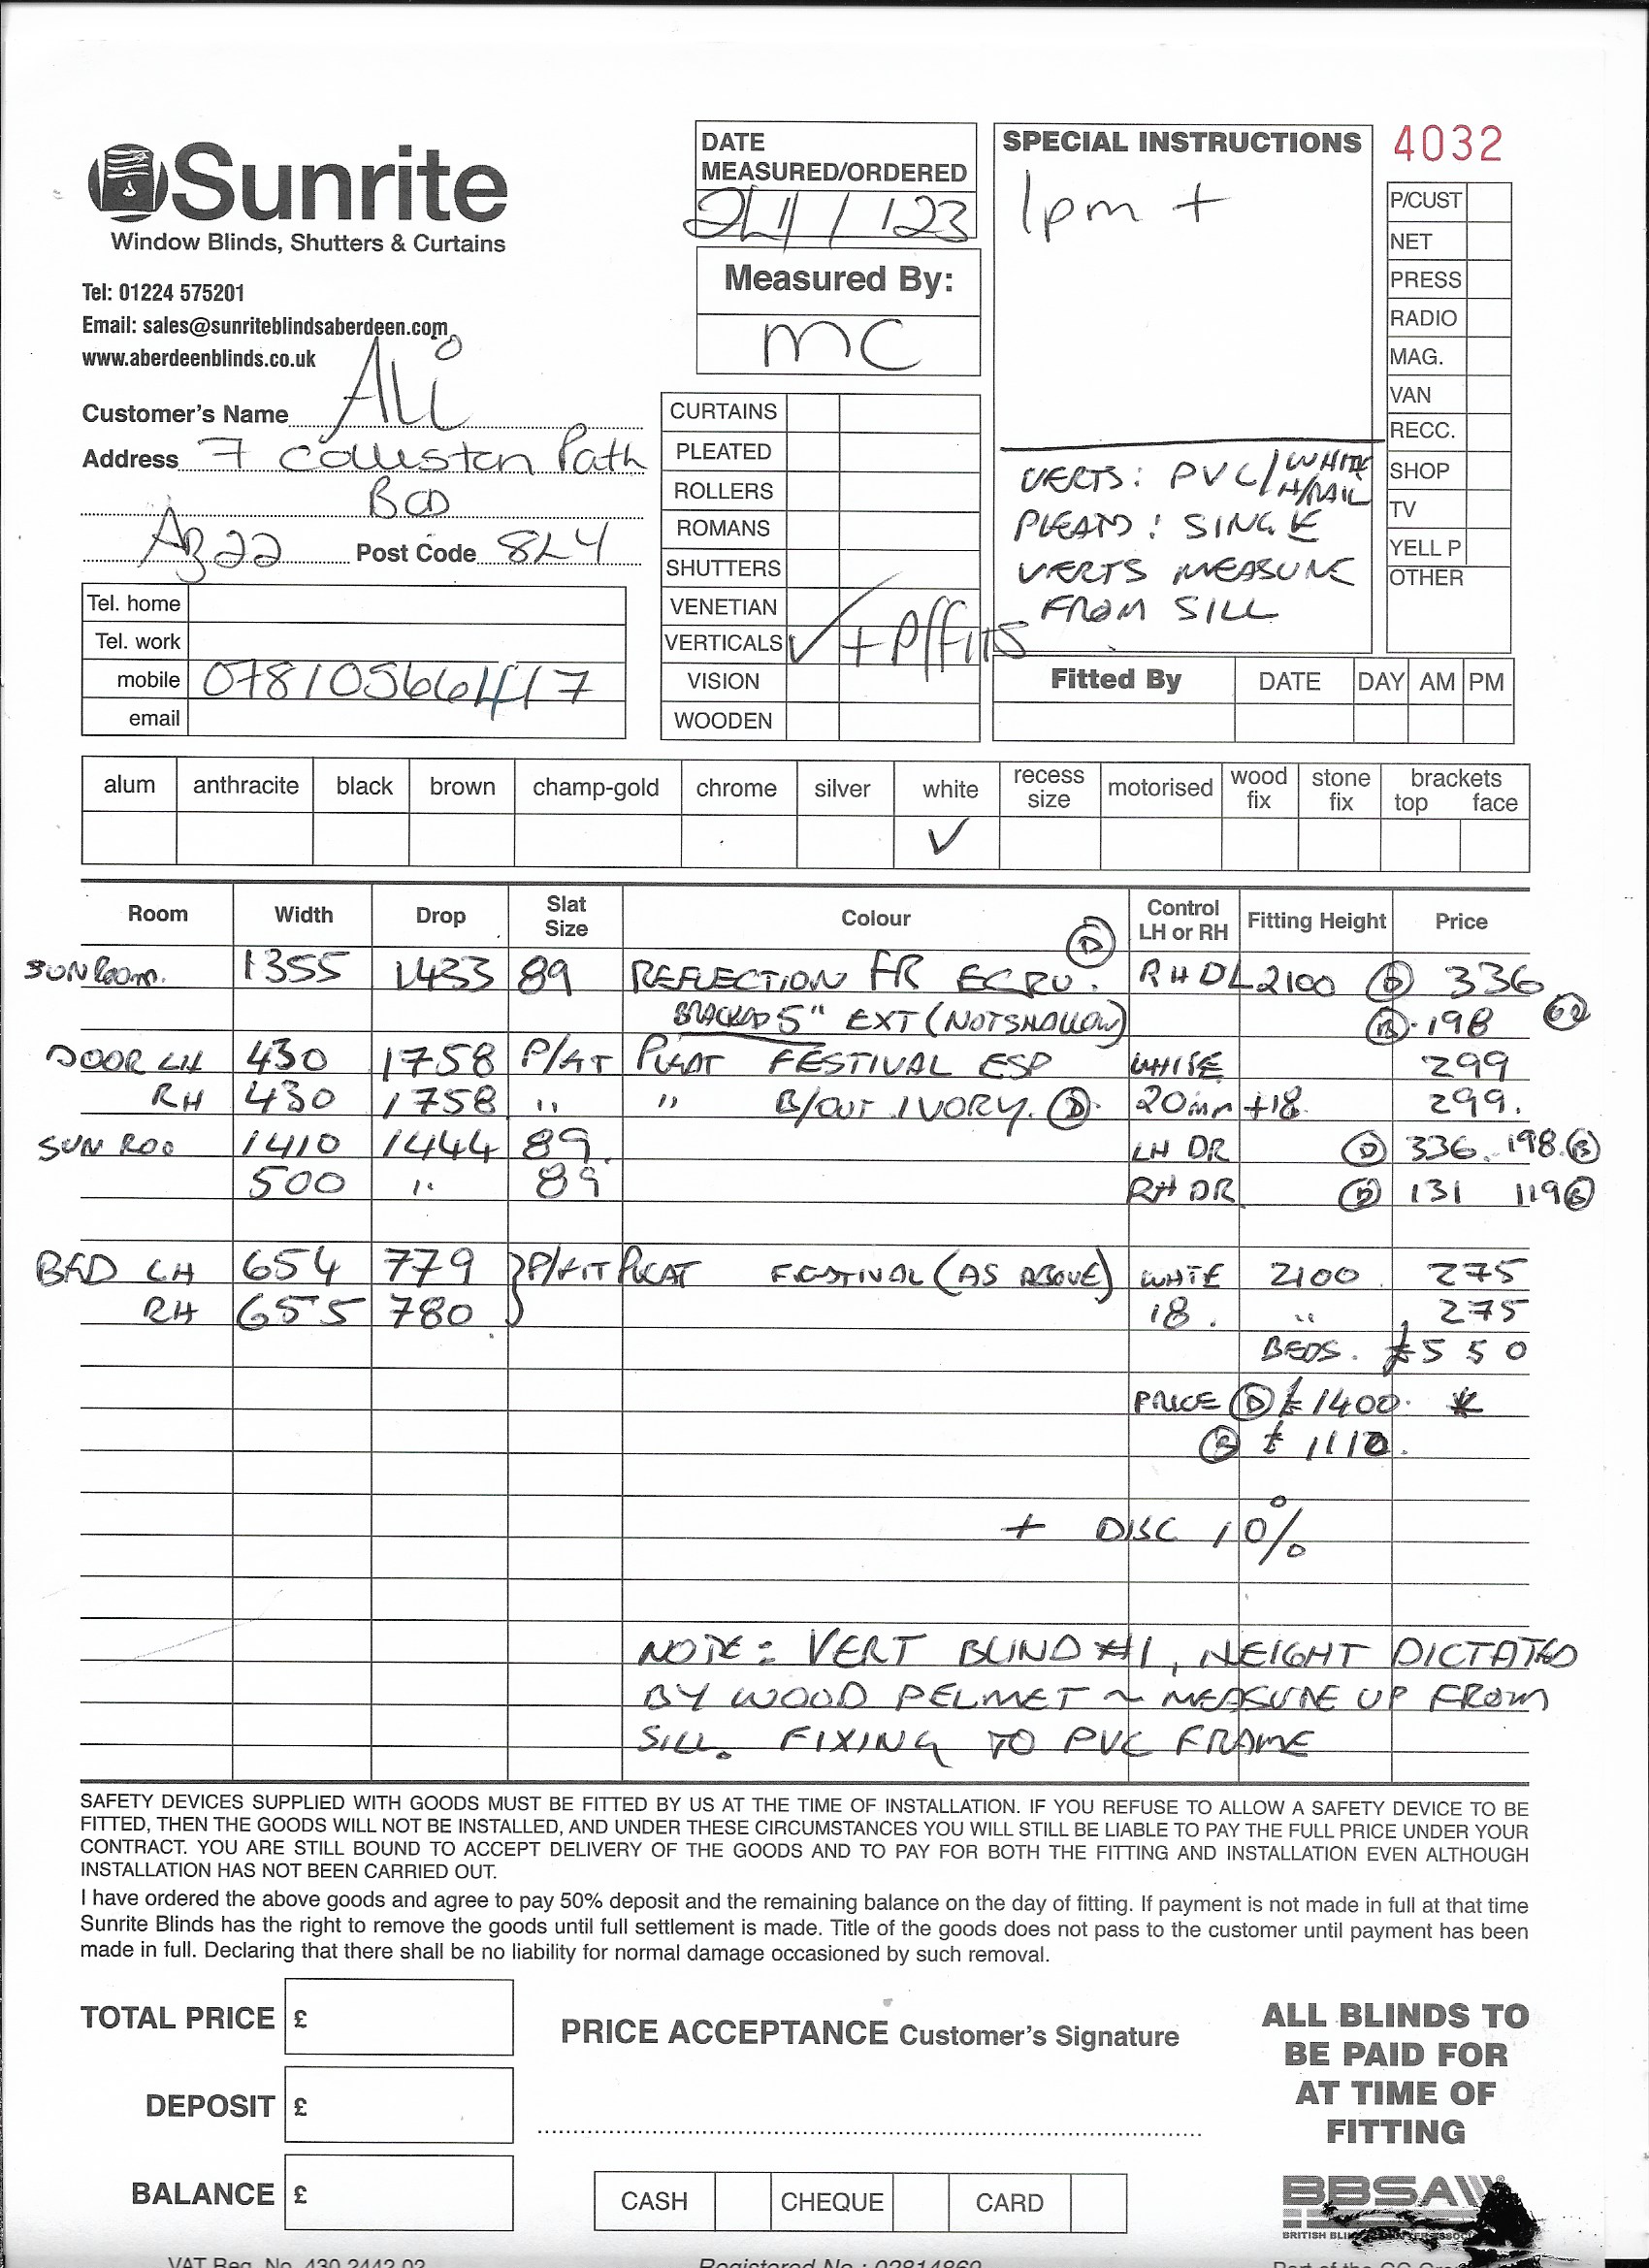 Sunrite
Window Blinds, Shutters & Curtains
Tel: 01224 575201
Email: sales@sunriteblindsaberdeen.com
www.aberdeenblinds.co.uk
Customer's Name ALi
Address 7 Collieston Path
BOD
AB22 Post Code 8LY
Tel. home
Tel. work
mobile
email
DATE
MEASURED/ORDERED
Measured By:
MC
CURTAINS
PLEATED
ROLLERS
ROMANS
SHUTTERS
VENETIAN
VERTICALS ✓ + P/FITS
VISION
WOODEN
SPECIAL INSTRUCTIONS
1pm +
VERTS: PVC/WHITE H/RAIL
PLEATS: SINGLE
VERTS MEASURE
FROM SILL
4032
P/CUST
NET
PRESS
RADIO
MAG.
VAN
RECC.
SHOP
TV
YELL P
OTHER
Fitted By DATE DAY AM PM
alum anthracite black brown champ-gold chrome silver white recess size motorised wood fix stone fix brackets top face
✓
Room Width Drop Slat Size Colour Control LH or RH Fitting Height Price
SUN Room. 1355 1433 89 REFLECTION FR ECRU. (D) RHDL 2100 (D) 336
BRACKETS 5" EXT (NOT SHALLOW) (B) 198
DOOR LH 430 1758 P/FIT PLEAT FESTIVAL ESP WHITE 299
RH 430 1758 " " B/OUT IVORY. (D) 20mm +18 299.
SUN ROO 1410 1444 89. LH DR (D) 336. 198 (B)
500 " 89 RH DR (D) 131 119 (B)
BED LH 654 779 } P/FIT PLEAT FESTIVAL (AS ABOVE) WHITE 2100 275
RH 655 780 18. " 275
BEDS. £550
PRICE (D) £1400. *
(B) £1110.
+ DISC 10%
NOTE: VERT BLIND #1, HEIGHT DICTATED
BY WOOD PELMET ~ MEASURE UP FROM
SILL. FIXING TO PVC FRAME
SAFETY DEVICES SUPPLIED WITH GOODS MUST BE FITTED BY US AT THE TIME OF INSTALLATION. IF YOU REFUSE TO ALLOW A SAFETY DEVICE TO BE
FITTED, THEN THE GOODS WILL NOT BE INSTALLED, AND UNDER THESE CIRCUMSTANCES YOU WILL STILL BE LIABLE TO PAY THE FULL PRICE UNDER YOUR
CONTRACT. YOU ARE STILL BOUND TO ACCEPT DELIVERY OF THE GOODS AND TO PAY FOR BOTH THE FITTING AND INSTALLATION EVEN ALTHOUGH
INSTALLATION HAS NOT BEEN CARRIED OUT.
I have ordered the above goods and agree to pay 50% deposit and the remaining balance on the day of fitting. If payment is not made in full at that time
Sunrite Blinds has the right to remove the goods until full settlement is made. Title of the goods does not pass to the customer until payment has been
made in full. Declaring that there shall be no liability for normal damage occasioned by such removal.
TOTAL PRICE £
DEPOSIT £
BALANCE £
PRICE ACCEPTANCE Customer's Signature
CASH CHEQUE CARD
ALL BLINDS TO
BE PAID FOR
AT TIME OF
FITTING
BBSA
VAT Reg. No. 430 2442 02